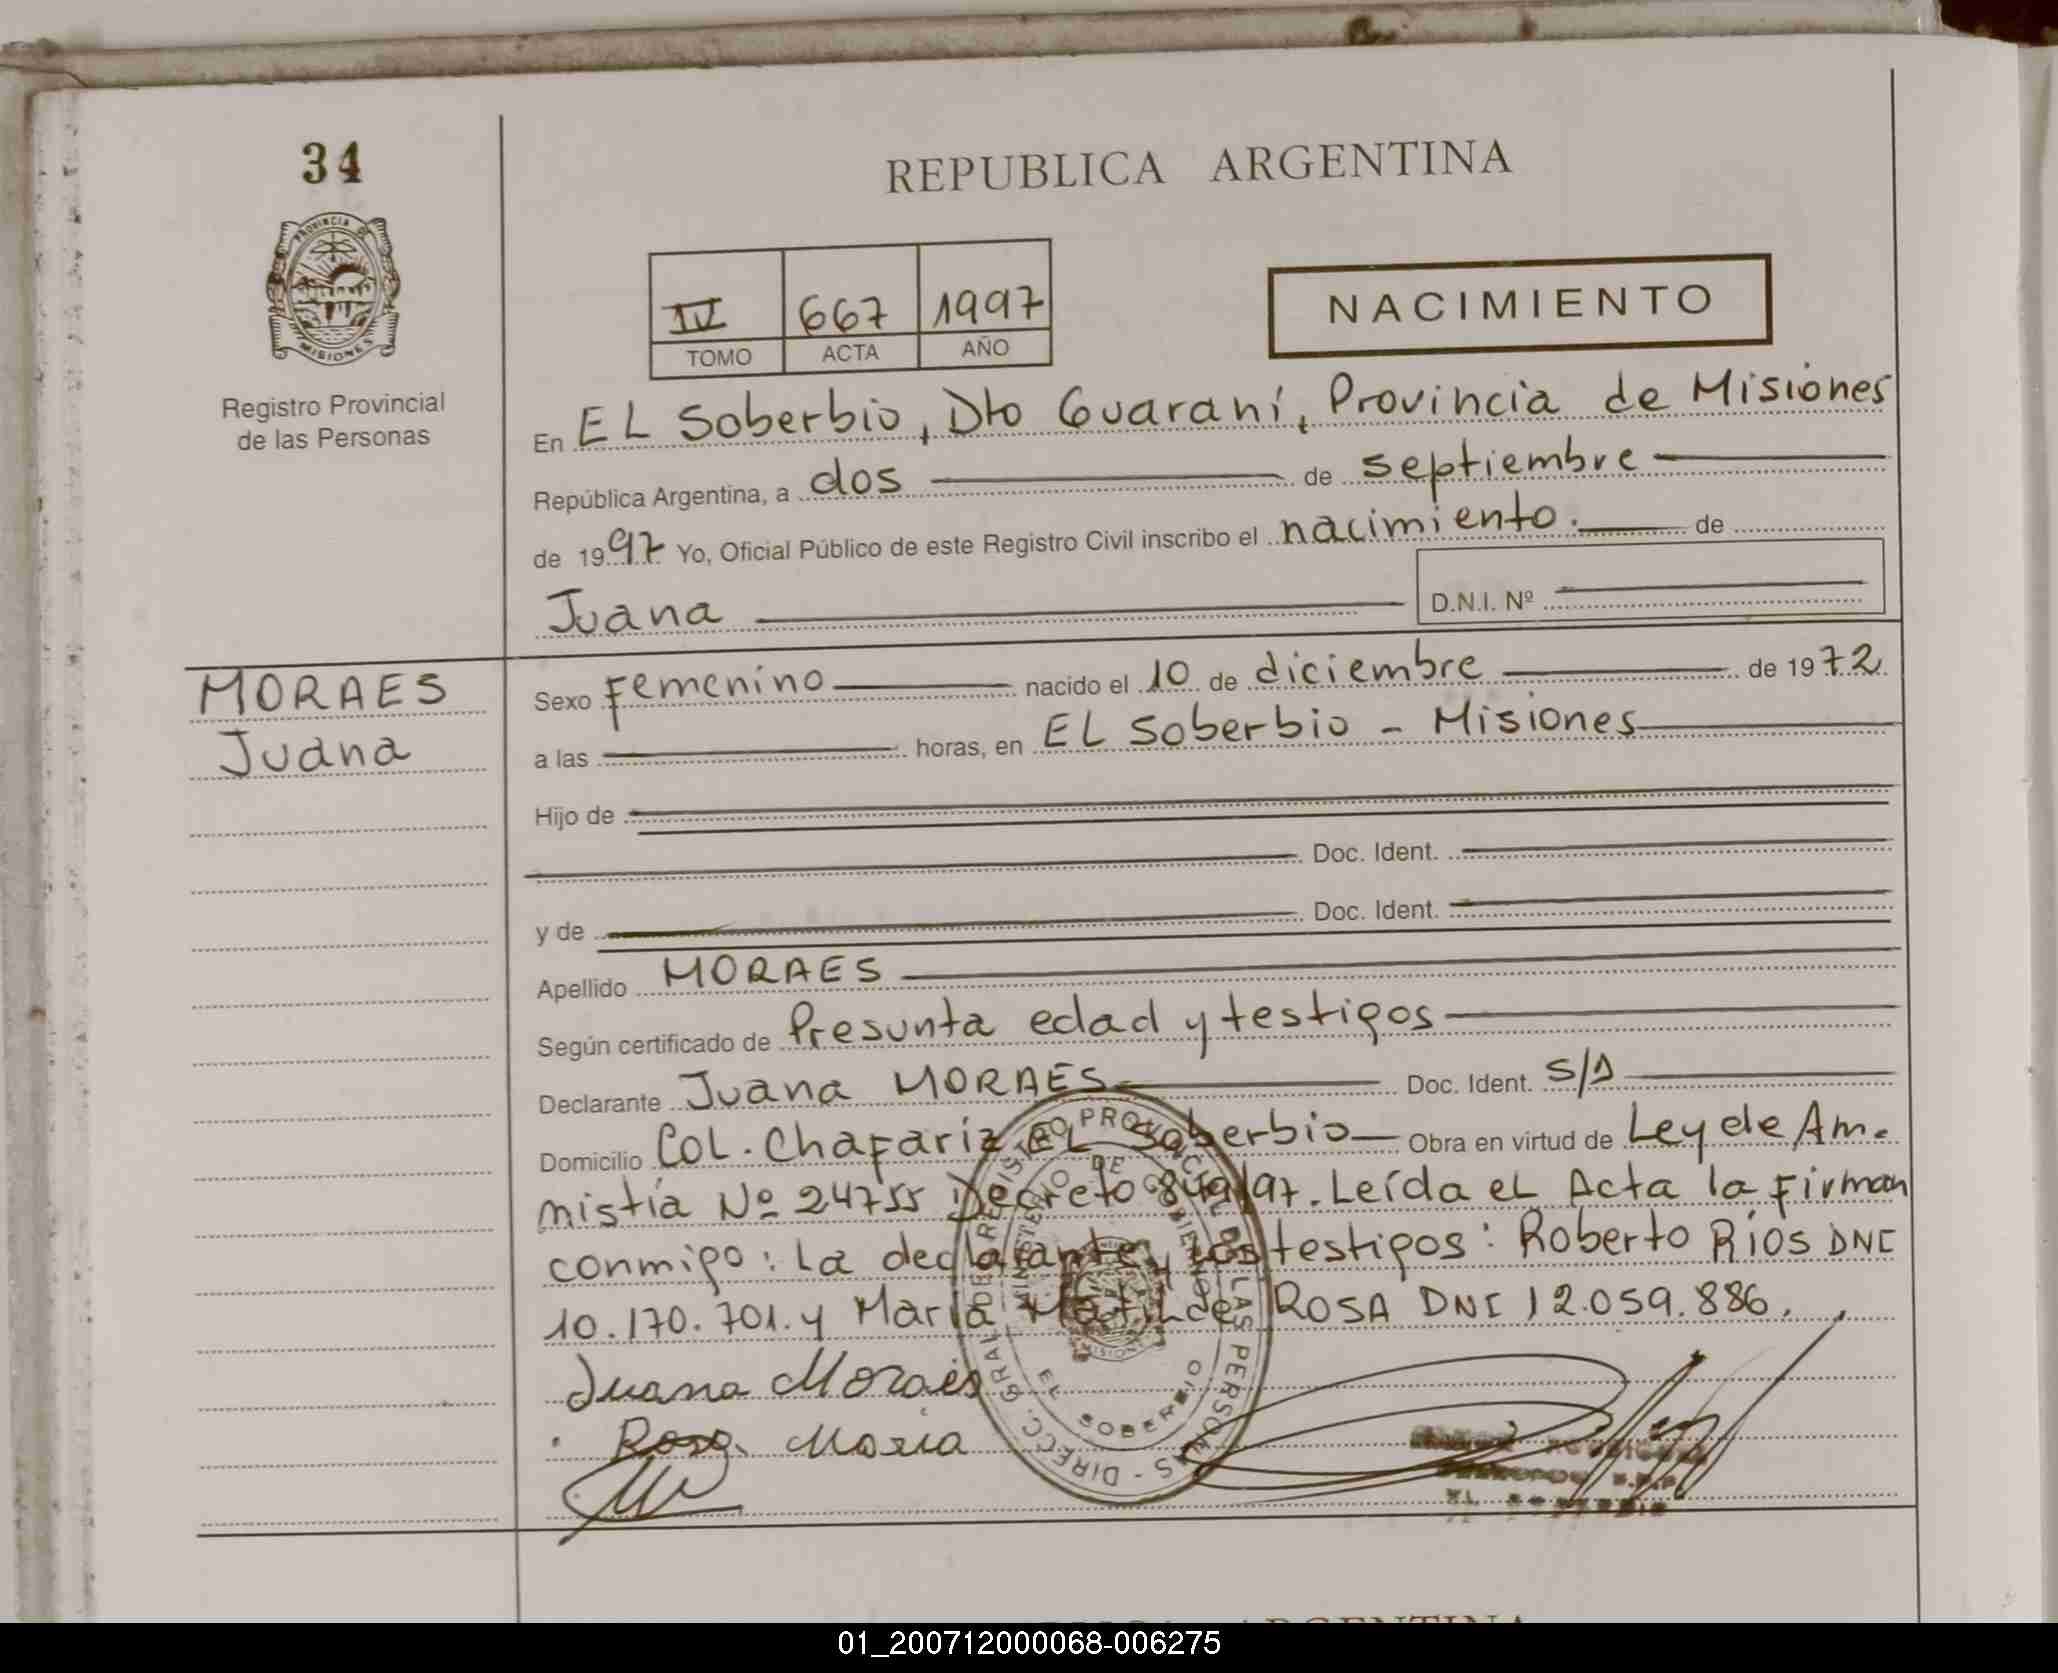 34
REPUBLICA ARGENTINA
PROVINCIA DE
MISIONES
Registro Provincial
de las Personas
IV 667 1997
TOMO ACTA AÑO
NACIMIENTO
En EL Soberbio, Dto Guaraní, Provincia de Misiones
República Argentina, a dos de septiembre
de 1997 Yo, Oficial Público de este Registro Civil inscribo el nacimiento. de
Juana D.N.I. Nº
MORAES
Juana
Sexo Femenino nacido el 10 de diciembre de 1972
a las horas, en EL Soberbio - Misiones
Hijo de
Doc. Ident.
y de Doc. Ident.
Apellido MORAES
Según certificado de Presunta edad y testigos
Declarante Juana MORAES Doc. Ident. S/D
Domicilio Col. Chafariz EL Soberbio Obra en virtud de Ley de Am.
nistía Nº 24755 Decreto /97. Leída el Acta la Firman
conmigo: La declarante y los testigos: Roberto RÍOS DNI
10.170.701. y María Matilde ROSA DNI 12.059.886.
Juana Moraes
Rosa Maria
DIRECC. GRAL. DE REGISTRO PROVINCIAL DE LAS PERSONAS -
MINISTERIO DE GOBIERNO
MISIONES
EL SOBERBIO
01_200712000068-006275